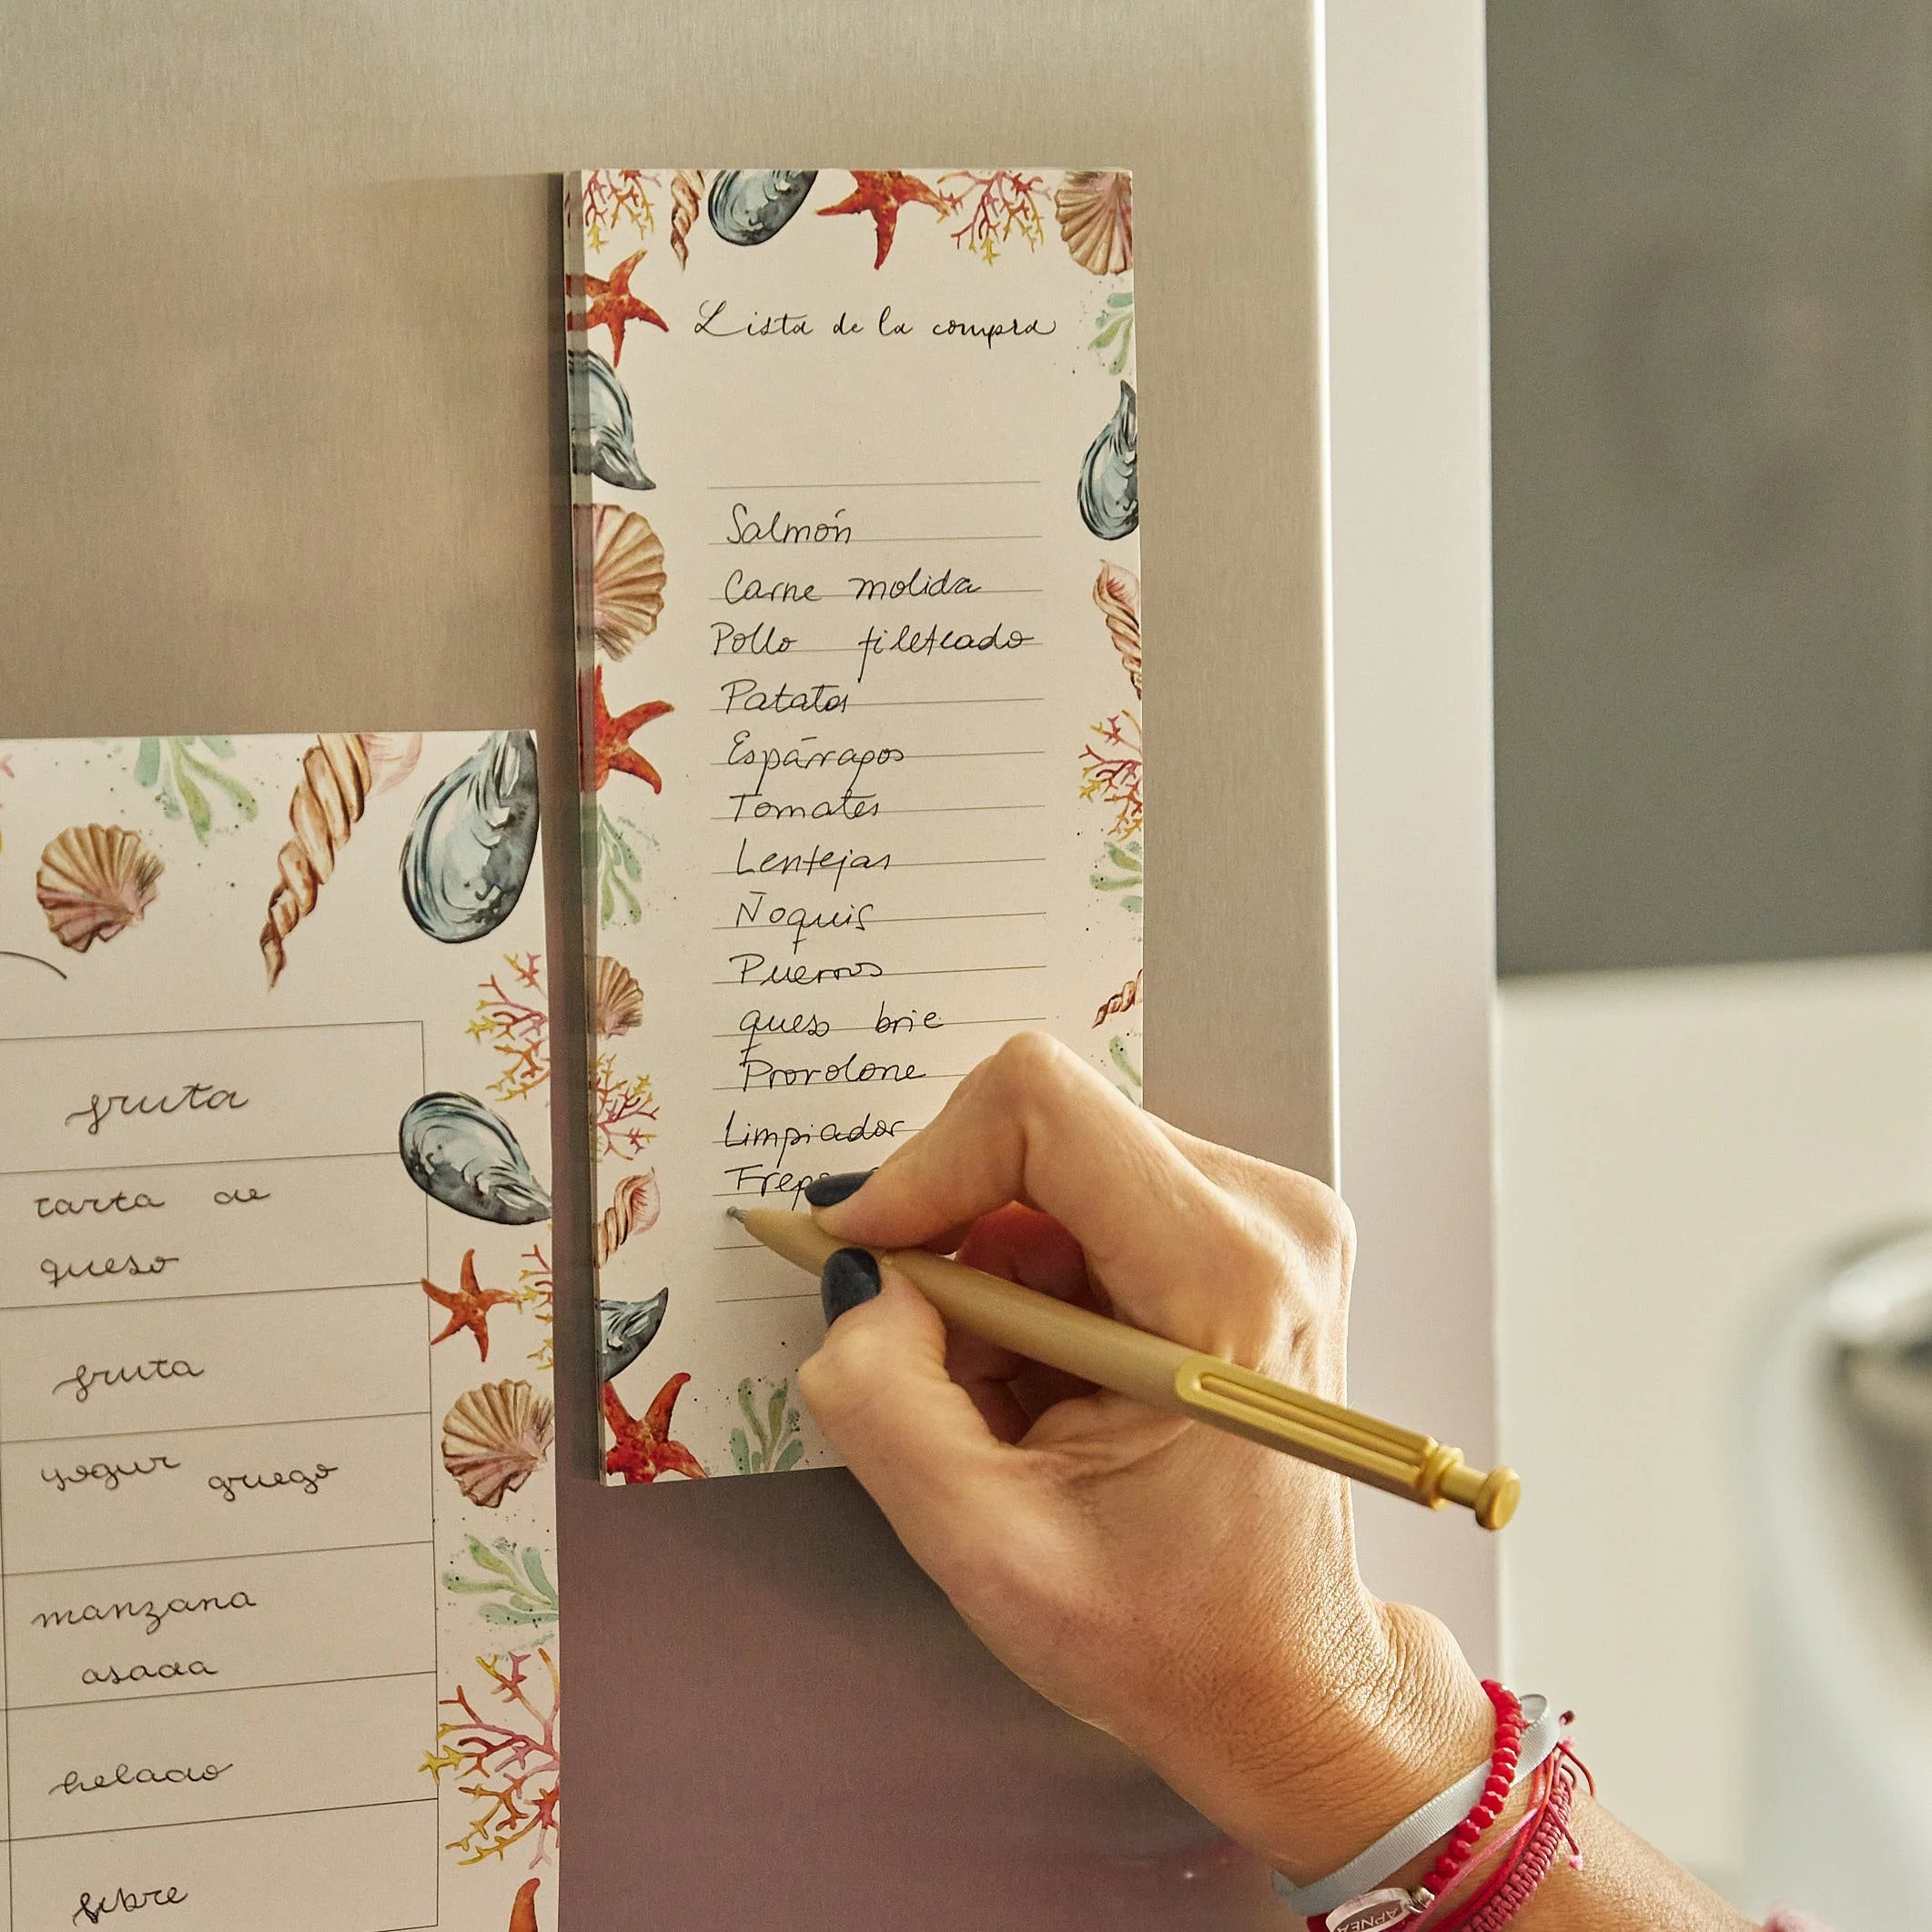 Lista de la compra
Salmón
Carne molida
Pollo fileteado
Patatas
Espárragos
Tomates
Lentejas
Ñoquis
Puerros
queso brie
Provolone
Limpiador
fruta
tarta de
queso
fruta
yogur griego
manzana
asada
helado
APNEA